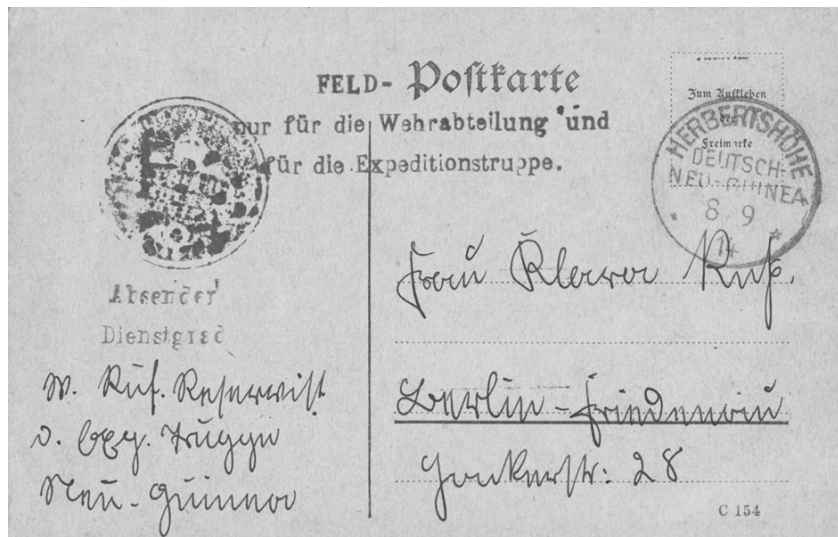 FELD- Postkarte
nur für die Wehrabteilung und
für die Expeditionstruppe.
Zum Aufkleben
der
Freimarke
HERBERTSHÖHE
DEUTSCH-
NEU-GUINEA
8 9
14
Absender
Dienstgrad
W. Ruß. Reservist
d. Exp. Truppe
Neu-Guinea
Frau Klara Ruß.
Berlin-Friedenau
str: 28
C 154